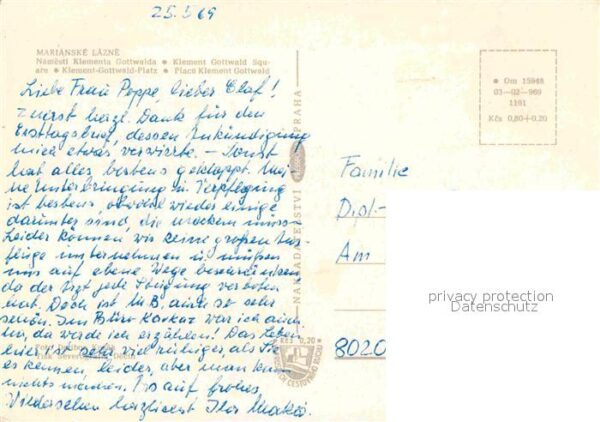 25.5.69
MARIÁNSKÉ LÁZNĚ
Náměstí Klementa Gottwalda • Klement Gottwald Squ-
are • Klement-Gottwald-Platz • Place Klement Gottwald
Liebe Frau Poppe, lieber Olaf!
Zuerst herzl. Dank für den
dessen Ankündigung
mich etwas verwirrte. – Sonst
hat alles bestens geklappt. Mei-
ne Unterbringung u. Verpflegung
ist bestens, obwohl wieder einige
darunter sind, die meckern müss.
Leider können wir keine großen Aus-
flüge unternehmen u. müssen
uns auf ebene Wege beschränken,
da der Arzt jede Steigung verboten
hat. Doch ist M.B. auch so sehr
schön. Im Büro war ich auch
da werde ich erzählen! Das Leben
hier ist sehr viel ruhiger, als Sie
es kennen, leider, aber man kann
nichts machen. Bis auf frohes
Wiedersehen herzlichst Ihr
NAKLADATELSTVÍ PRAHA
Kčs 0,20
• Om 15948
03-02-969
1101
Kčs 0,80+0,20
Familie
Dipl.-
Am
8020
privacy protection
Datenschutz